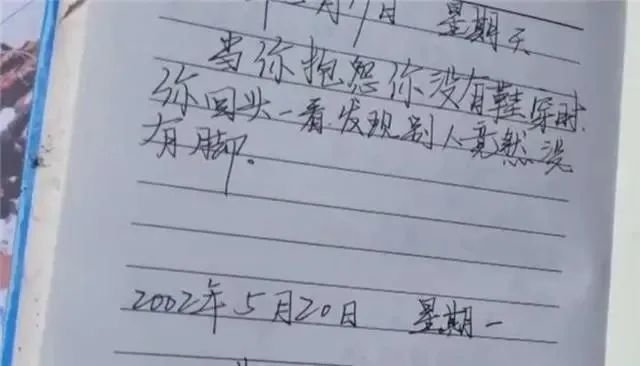 月19日 星期天
当你抱怨你没有鞋穿时.
你回头一看发现别人竟然没
有脚.
2002年5月20日 星期一